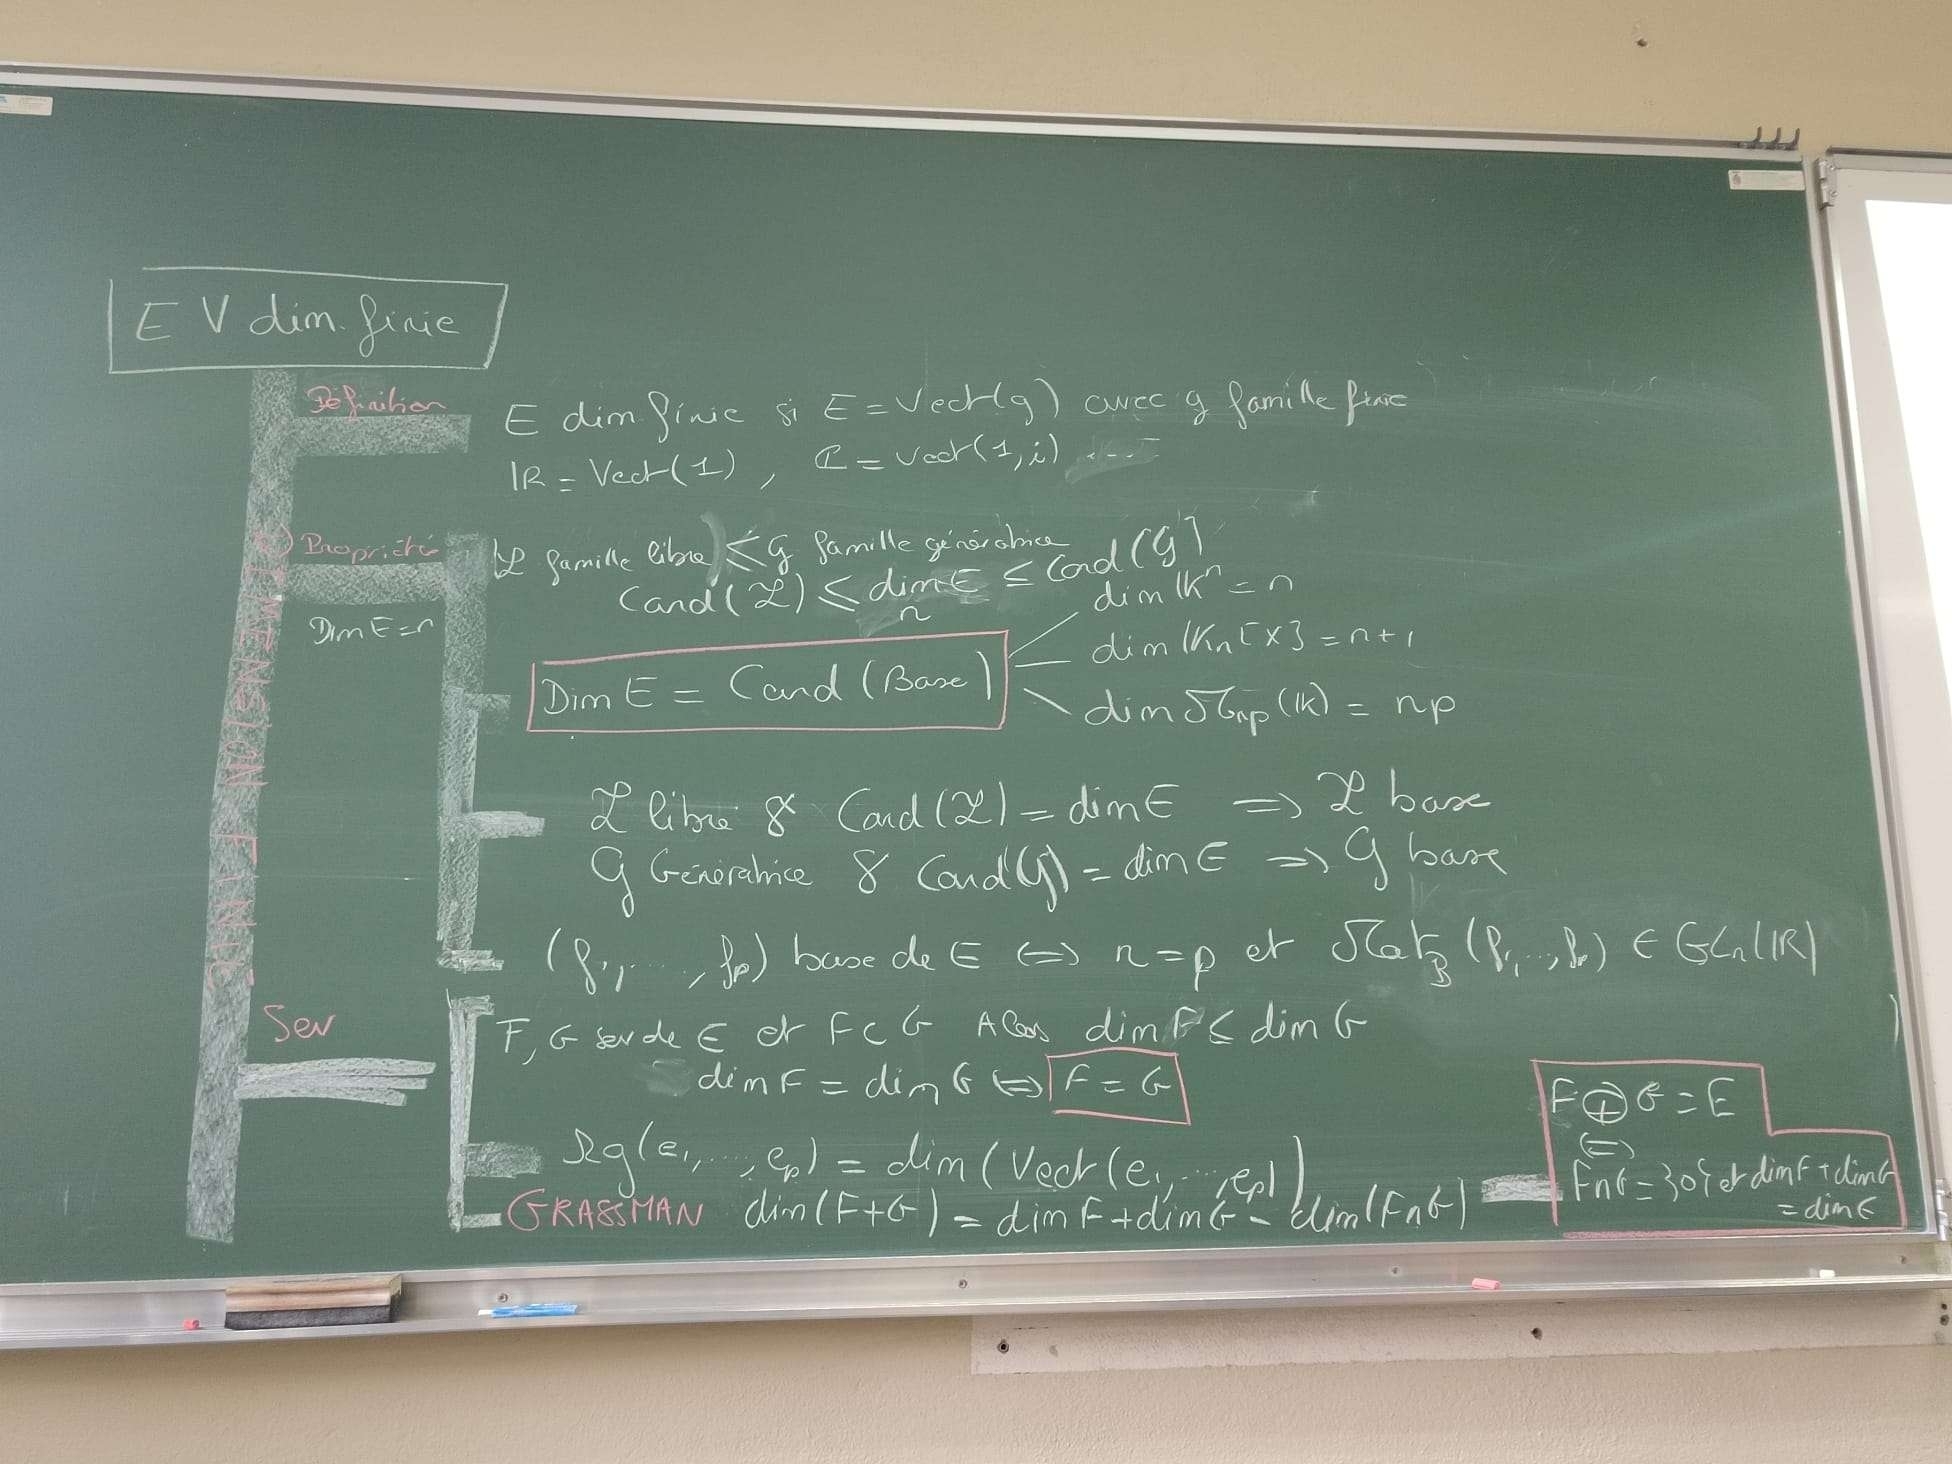 EV dim. finie
Définition
E dim. finie si E = Vect(g) avec g famille finie
IR = Vect(1), ℂ = Vect(1, i)
DIMENSION FINIE
Propriétés
Dim E = n
ℒ famille libre ≤ G famille génératrice
Card(ℒ) ≤ dim E ≤ Card(G)
n
dim 𝕂ⁿ = n
Dim E = Card(Base)
dim 𝕂n[X] = n+1
dim 𝓜np(𝕂) = np
ℒ libre & Card(ℒ) = dim E ⇒ ℒ base
G Génératrice & Card(G) = dim E ⇒ G base
(f1, ...., fp) base de E ⇔ n = p et MatB(f1, ..., fp) ∈ GLn(IR)
Sev
F, G sev de E et F ⊂ G Alors dim F ≤ dim G
dim F = dim G ⇔ F = G
Rg(e1, ...., ep) = dim(Vect(e1, ..., ep))
GRASSMAN dim(F+G) = dim F + dim G - dim(F∩G)
F ⊕ G = E
⇔
F∩G = {0} et dim F + dim G
= dim E